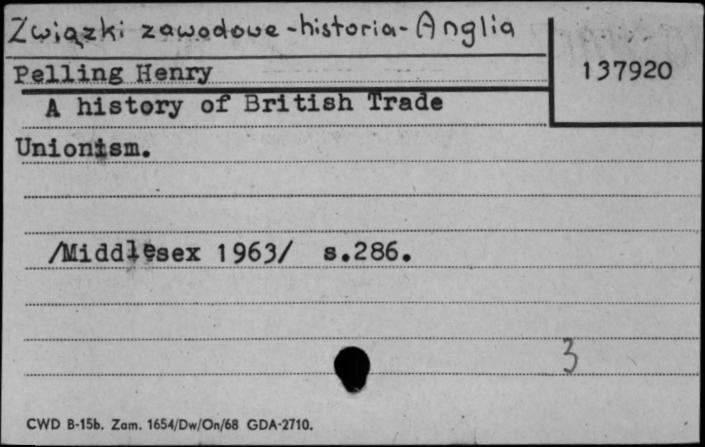 Związki zawodowe - historia - Anglia
Pelling Henry
137920
A history of British Trade
Unionism.
/Middlesex 1963/ s.286.
3
CWD B-15b. Zam. 1654/Dw/On/68 GDA-2710.